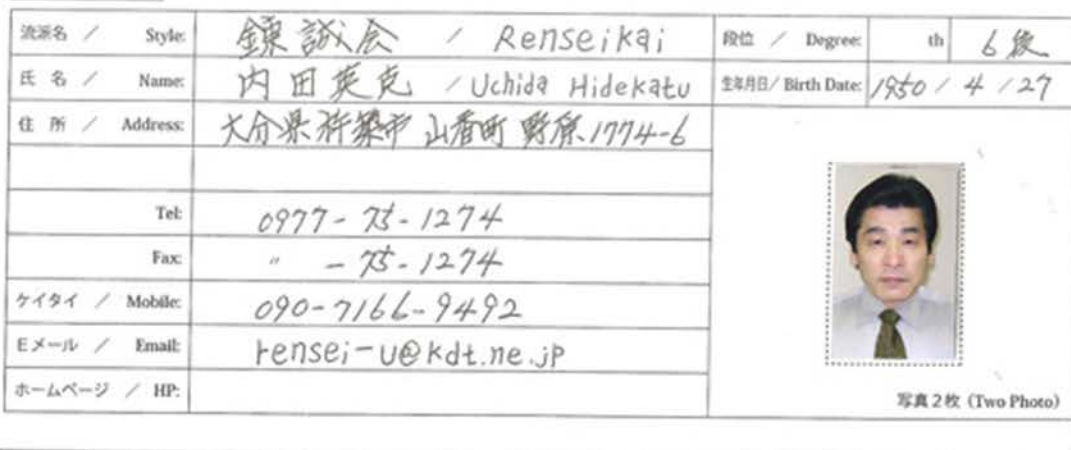 流派名 / Style: 錬誠会 / Renseikai 段位 / Degree: th 6段
氏名 / Name: 内田英克 / Uchida Hidekatu 生年月日 / Birth Date: 1950 / 4 / 27
住所 / Address: 大分県杵築市山香町野原1774-6
Tel: 0977-75-1274
Fax: 〃 -75-1274
ケイタイ / Mobile: 090-7166-9492
Eメール / Email: rensei-u@kdt.ne.jp
ホームページ / HP:
写真2枚 (Two Photo)